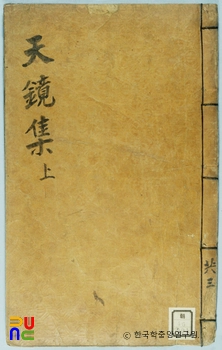 天鏡集
上
共三
ⓒ 한국학중앙연구원